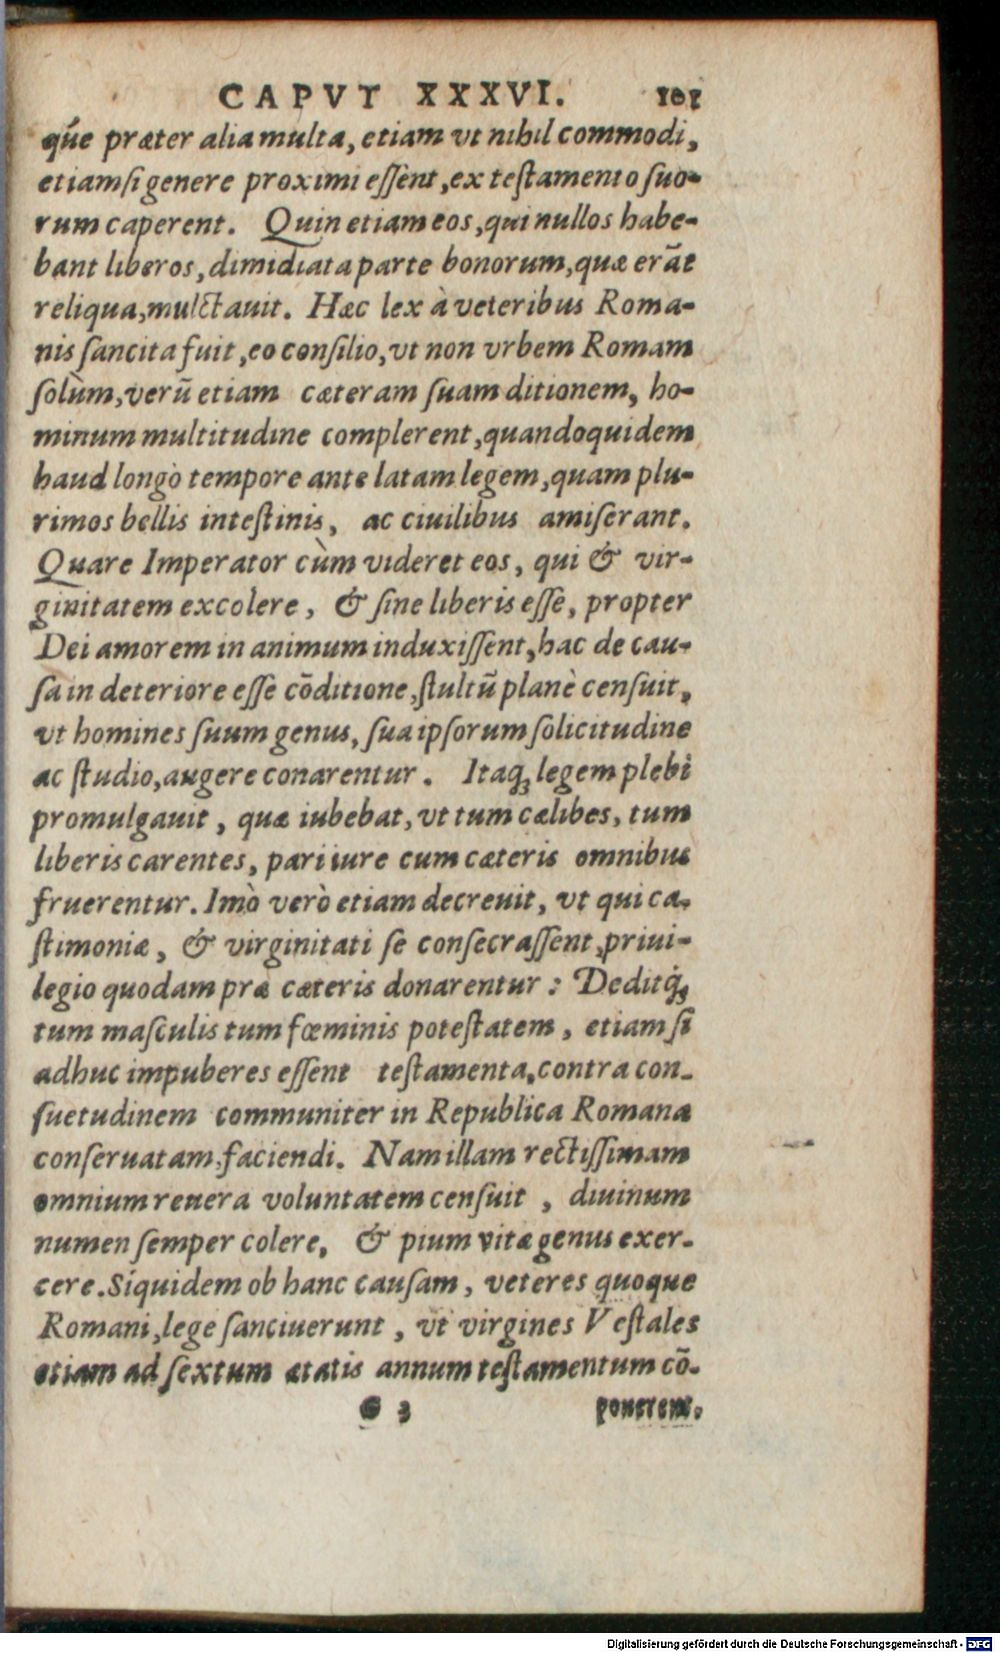 CAPVT XXXVI. 101
q́ue præter alia multa, etiam vt nihil commodi,
etiamsi genere proximi essent, ex testamento suo-
rum caperent. Quin etiam eos, qui nullos habe-
bant liberos, dimidiata parte bonorum, quæ erāt
reliqua, mulctauit. Hæc lex à veteribus Roma-
nis sancita fuit, eo consilio, vt non vrbem Romam
solùm, verū etiam cæteram suam ditionem, ho-
minum multitudine complerent, quandoquidem
haud longò tempore ante latam legem, quam plu-
rimos bellis intestinis, ac ciuilibus amiserant.
Quare Imperator cùm videret eos, qui & vir-
ginitatem excolere, & sine liberis esse, propter
Dei amorem in animum induxissent, hac de cau-
sa in deteriore esse cōditione, stultū planè censuit,
vt homines suum genus, sua ipsorum solicitudine
ac studio, augere conarentur. Itaq; legem plebi
promulgauit, quæ iubebat, vt tum cælibes, tum
liberis carentes, pari iure cum cæteris omnibus
fruerentur. Imò verò etiam decreuit, vt qui ca-
stimoniæ, & virginitati se consecrassent, priui-
legio quodam præ cæteris donarentur: Deditq́;
tum masculis tum fœminis potestatem, etiam si
adhuc impuberes essent testamenta, contra con-
suetudinem communiter in Republica Romana
conseruatam, faciendi. Nam illam rectissimam
omnium reuera voluntatem censuit, diuinum
numen semper colere, & pium vitæ genus exer-
cere. Siquidem ob hanc causam, veteres quoque
Romani, lege sanciuerunt, vt virgines Vestales
etiam ad sextum ætatis annum testamentum cō-
G 3 ponerent.
Digitalisierung gefördert durch die Deutsche Forschungsgemeinschaft - DFG